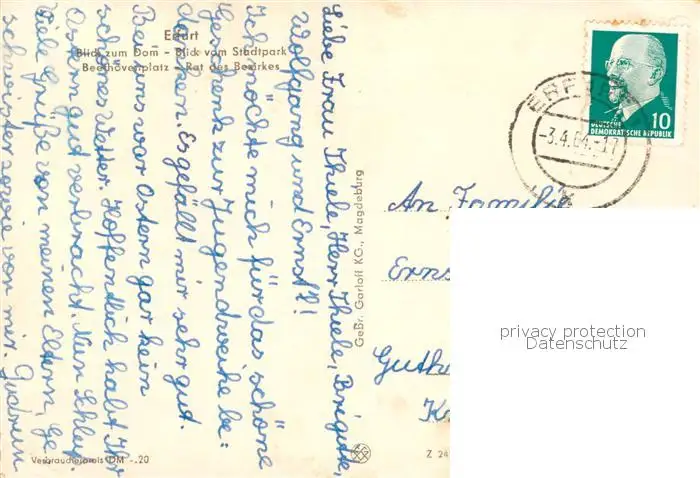 Erfurt
Blick zum Dom - Blick vom Stadtpark
Beethovenplatz - Rat des Bezirkes
Liebe Frau Thiele, Herr Thiele, Brigitte,
Wolfgang und Ernst!
Ich möchte mich für das schöne
Geschenk zur Jugendweihe be=
danken. Es gefällt mir sehr gut.
Bei uns war Ostern gar kein
schönes Wetter. Hoffentlich habt Ihr
Ostern gut verbracht. Nun Schluß.
Viele Grüße von meinen Eltern, Ge
schwister sowie von mir. Gudrun
Verbraucherpreis DM -.20
Gebr. Garloff KG., Magdeburg
Z 24
DEUTSCHE
DEMOKRATISCHE REPUBLIK
10
ERFURT
-3.4.64.-17
An Familie
Erns
Guth
K
privacy protection
Datenschutz